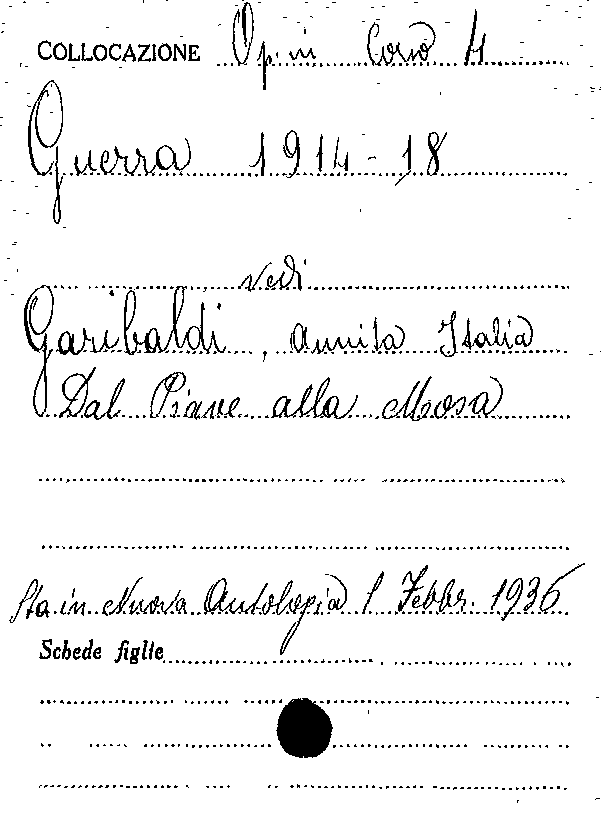 COLLOCAZIONE Op. in Corso 4
Guerra 1914-18
vedi
Garibaldi, Annita Italia
Dal Piave alla Mosa
Sta in Nuova Antologia 1 Febbr. 1936
Schede figlie